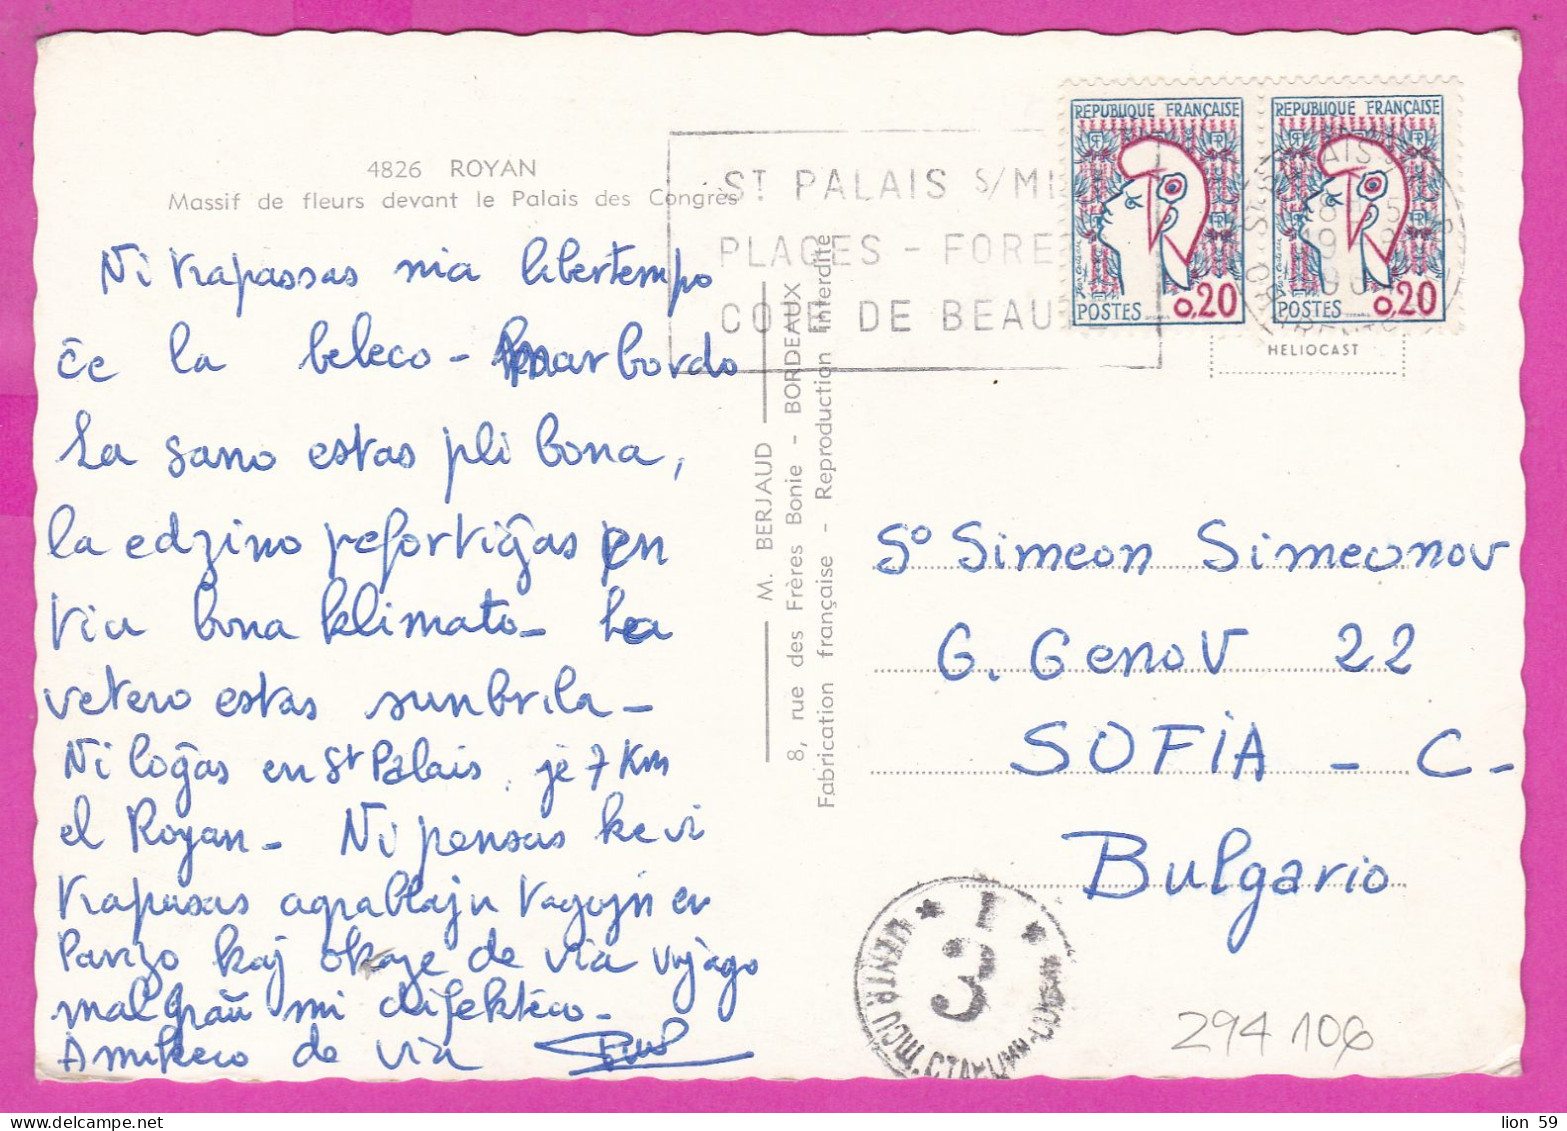 4826 ROYAN
Massif de fleurs devant le Palais des Congrès
Ni trapassas mia libertempo
ĉe la beleco - marbordo
La sano estas pli bona,
la edzino refortiĝas en
tiu bona klimato - La
vetero estas sunbrila -
Ni loĝas en St Palais, je 7 Km
el Royan - Ni pensas ke vi
trapasas agrablajn tagojn en
Parizo kaj okaze de via vojago
malgraŭ mi difekteco -
Amikeco de via
M. BERJAUD
8, rue des Frères Bonie - BORDEAUX
Fabrication française - Reproduction interdite
ST PALAIS S/M
PLAGES - FORE
COTE DE BEAU
REPUBLIQUE FRANÇAISE
POSTES 0,20
REPUBLIQUE FRANÇAISE
POSTES 0,20
HELIOCAST
So Simeon Simeonov
G. Genov 22
SOFIA - C -
Bulgario
3
294106
lion 59